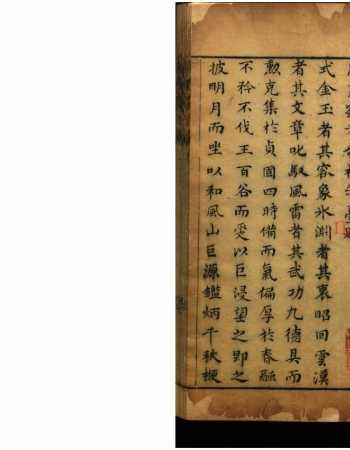 式金玉者其容象氷淵者其裏昭回雲漢
者其文章叱馭風雷者其武功九德具而
勲克集於貞國四時備而氣偏厚於春融
不矜不伐王百谷而爰以巨浸望之即之
披明月而坐以和風山巨源鑑炳千秋梗